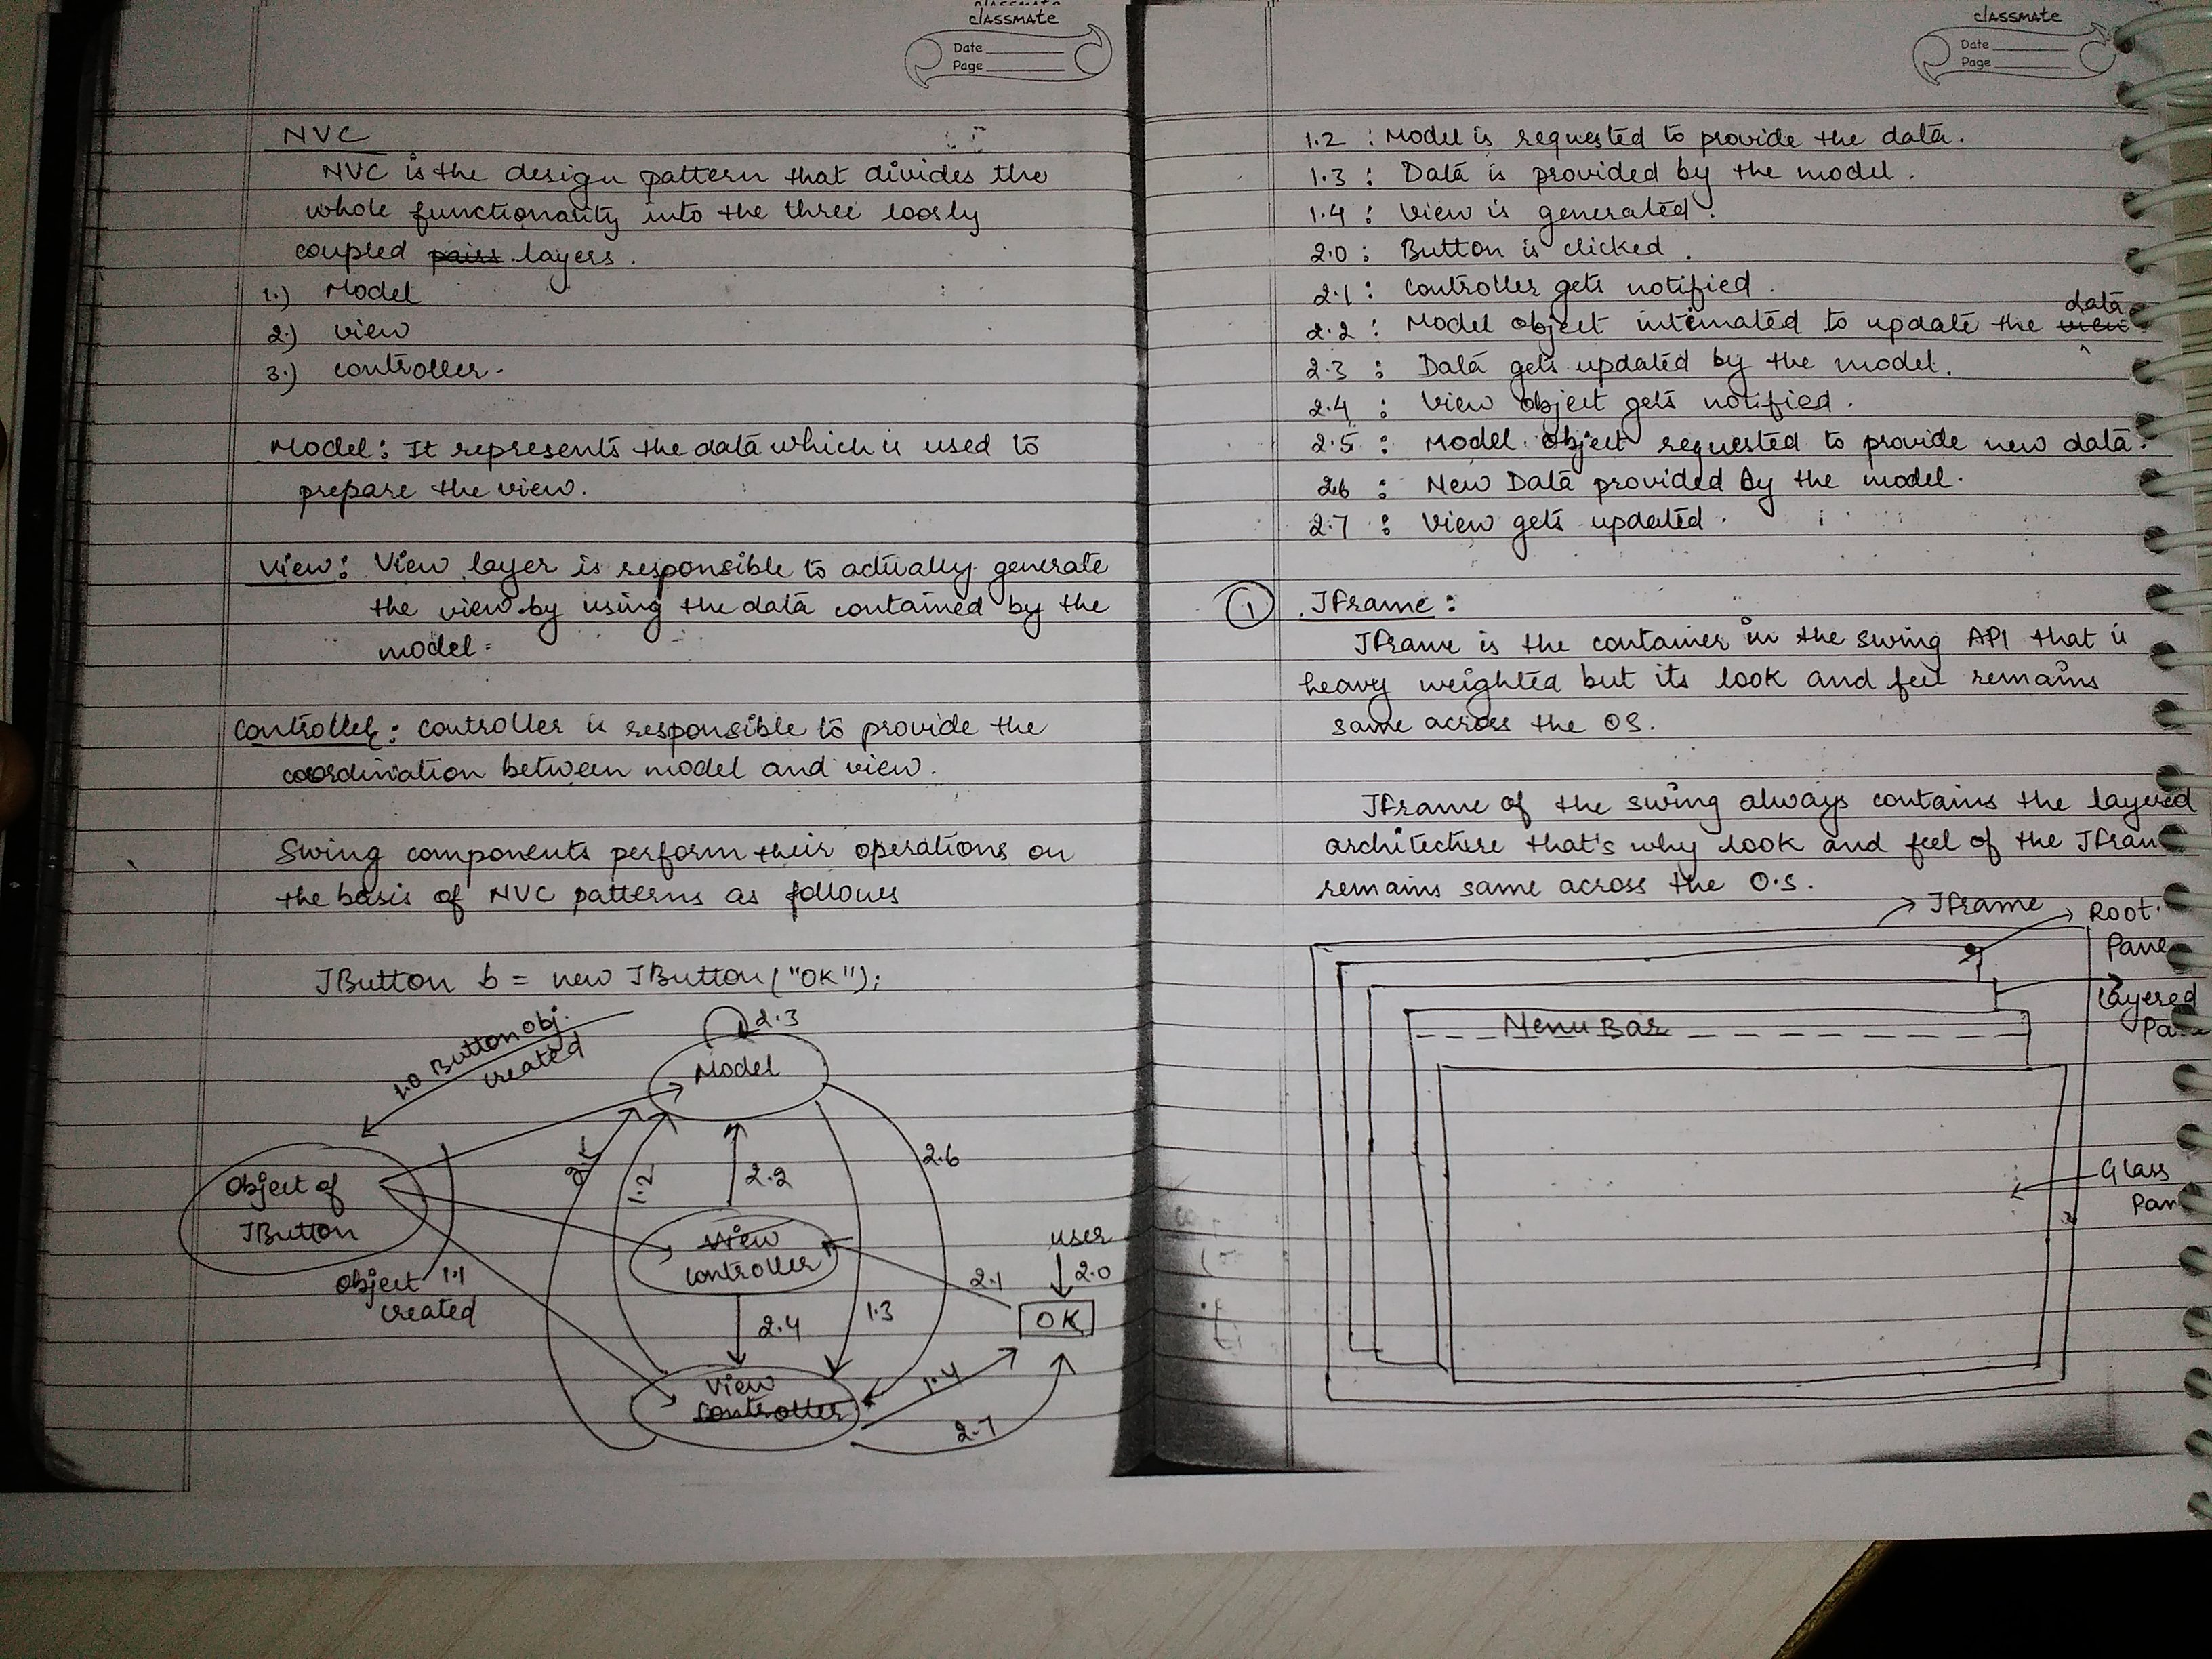 classmate
Date
Page
NVC
NVC is the design pattern that divides the
whole functionality into the three loosly
coupled pairs layers.
1.) Model
2.) view
3.) controller.
Model: It represents the data which is used to
prepare the view.
View: View layer is responsible to actually generate
the view by using the data contained by the
model.
Controller: controller is responsible to provide the
coordination between model and view.
Swing components perform their operations on
the basis of NVC patterns as follows
JButton b = new JButton("OK");
1.0 Button obj.
created
2.3
Model
Object of
JButton
Object 1.1
created
1.2
2.2
2.6
view
controller
user
2.0
2.1
OK
2.4
1.3
view
controller
1.4
2.7
classmate
Date
Page
1.2 : Model is requested to provide the data.
1.3 : Data is provided by the model.
1.4 : view is generated.
2.0 : Button is clicked.
2.1 : controller gets notified.
data
2.2 : Model object intimated to update the view
2.3 : Data gets updated by the model.
2.4 : View object gets notified.
2.5 : Model object requested to provide new data.
2.6 : New Data provided by the model.
2.7 : View gets updated.
1 JFrame:
JFrame is the container in the swing API that is
heavy weighted but its look and feel remains
same across the OS.
JFrame of the swing always contains the layered
architecture that's why look and feel of the JFram
remains same across the O.S.
JFrame
Root
Pane
Layered
Pa
Menu Bar
Glass
Pan